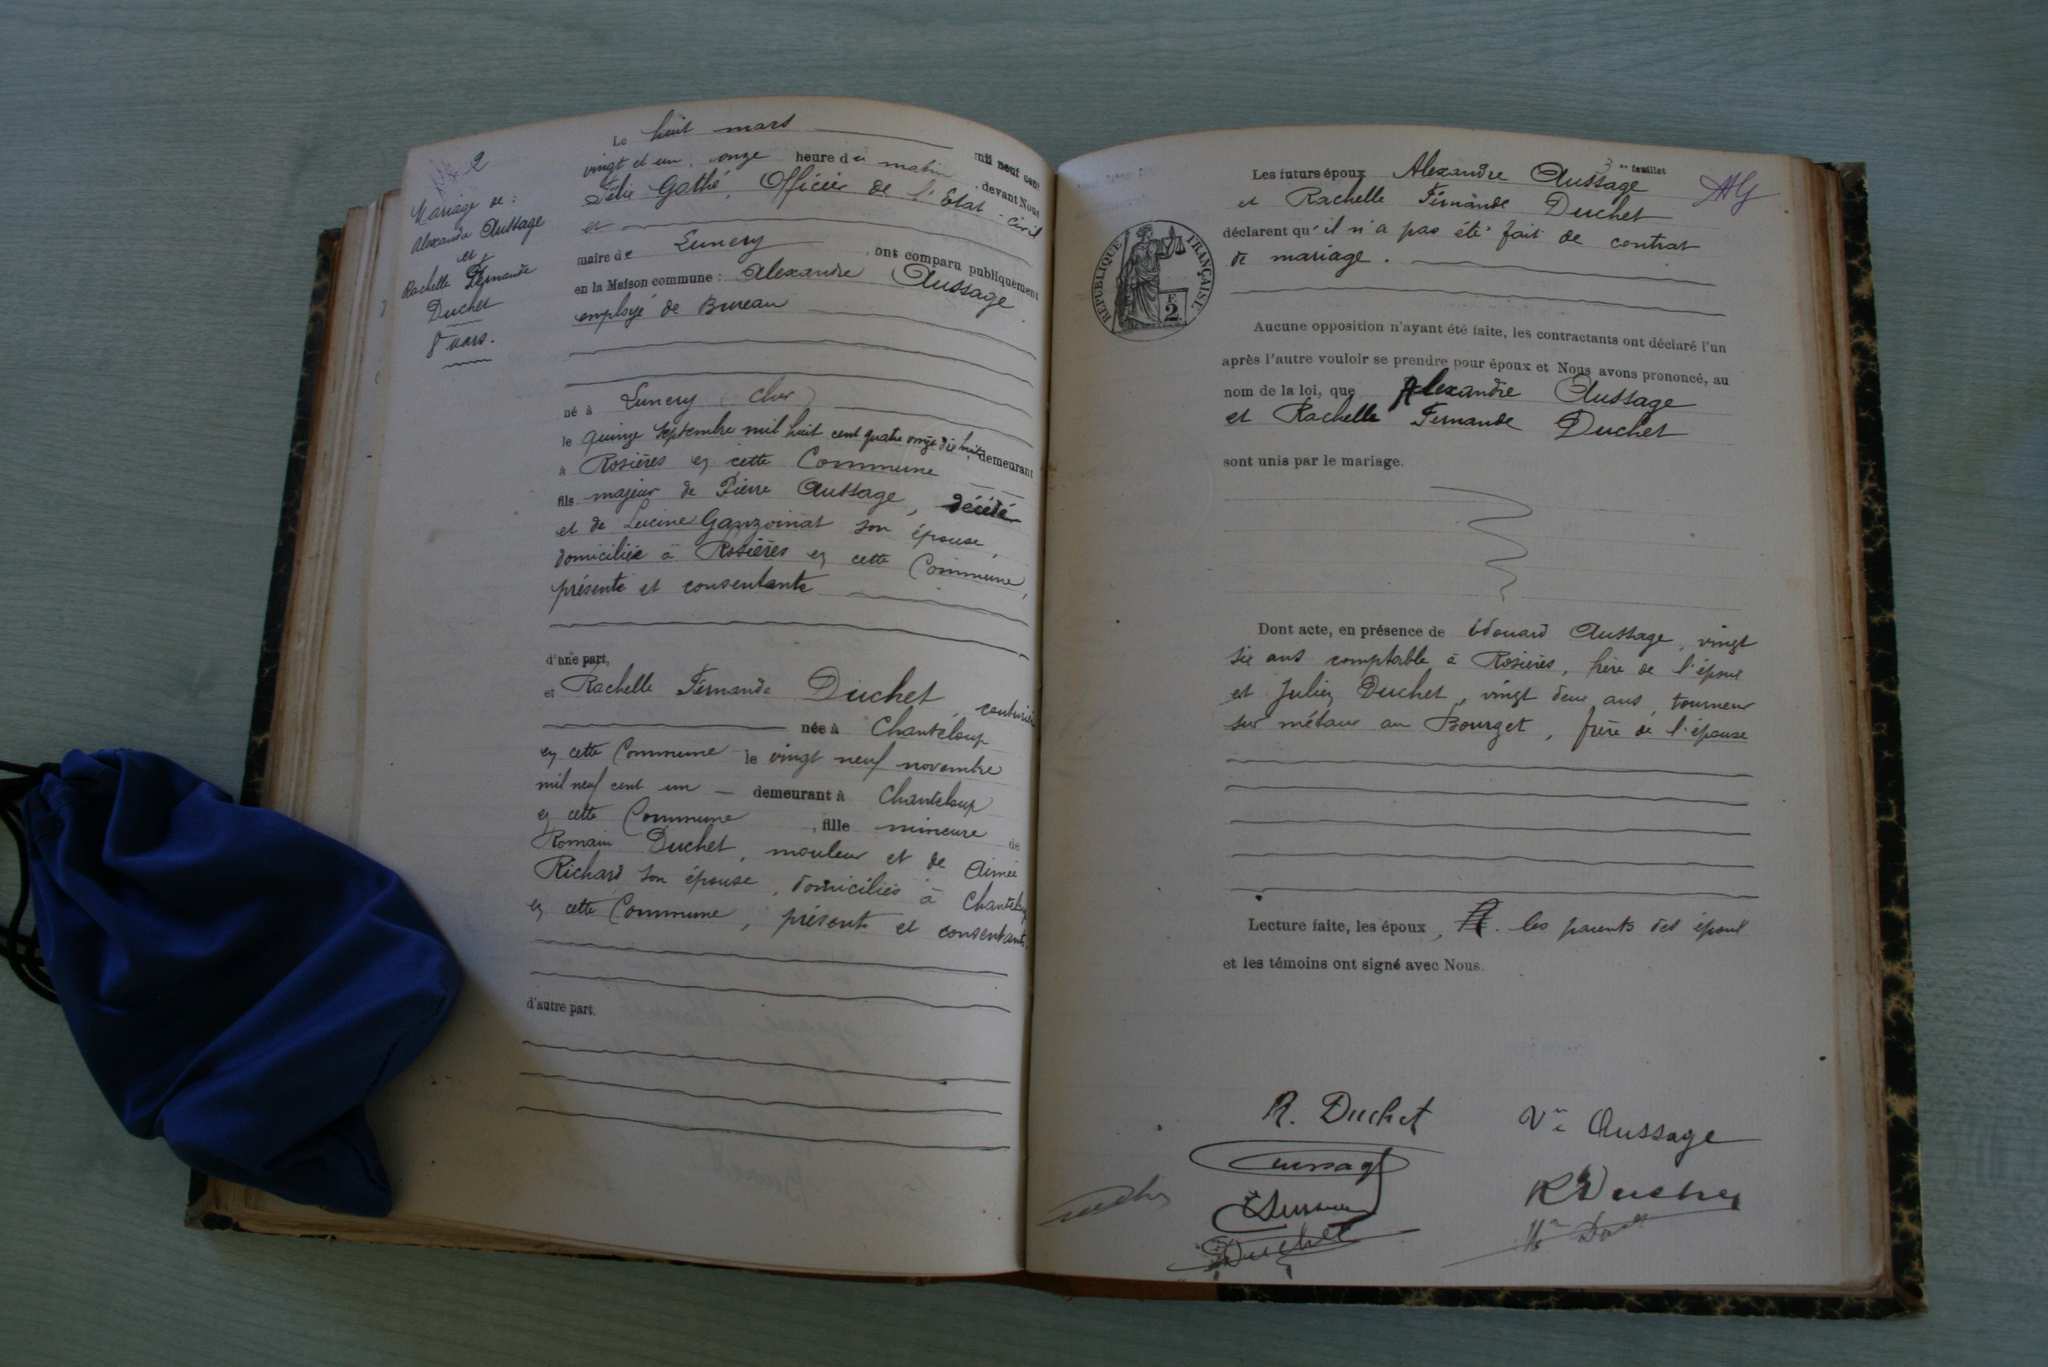 N° 2
Mariage de :
Alexandre Aussage
et
Rachelle Fernande
Duchet
8 mars.
Le huit mars mil neuf cent
vingt et un, onze heure du matin, devant Nous
Félix Gathé, Officier de l'Etat-Civil
et
maire de Lunery, ont comparu publiquement
en la Maison commune : Alexandre Aussage
employé de Bureau
né à Lunery (Cher)
le quinze septembre mil huit cent quatre vingt dix huit, demeurant
à Rosières en cette Commune
fils majeur de Pierre Aussage, décédé
et de Lucine Ganzoinat son épouse,
domiciliée à Rosières en cette Commune,
présente et consentante
d'une part,
et Rachelle Fernande Duchet, couturière
née à Chanteloup
en cette Commune le vingt neuf novembre
mil neuf cent un demeurant à Chanteloup
en cette Commune, fille mineure de
Romain Duchet, mouleur et de Aimée
Richard son épouse, domiciliés à Chanteloup
en cette Commune, présents et consentants
d'autre part.
3 me feuillet
Les futurs époux Alexandre Aussage
et Rachelle Fernande Duchet
déclarent qu'il n'a pas été fait de contrat
de mariage.
RÉPUBLIQUE FRANÇAISE
2 F
Aucune opposition n'ayant été faite, les contractants ont déclaré l'un
après l'autre vouloir se prendre pour époux et Nous avons prononcé, au
nom de la loi, que Alexandre Aussage
et Rachelle Fernande Duchet
sont unis par le mariage.
Dont acte, en présence de Edouard Aussage, vingt
six ans comptable à Rosières, frère de l'époux
et Julien Duchet, vingt deux ans, tourneur
sur métaux au Bourget, frère de l'épouse
Lecture faite, les époux, les parents des époux
et les témoins ont signé avec Nous.
R. Duchet
Ve Aussage
Aussage
R Duchet
Duchet